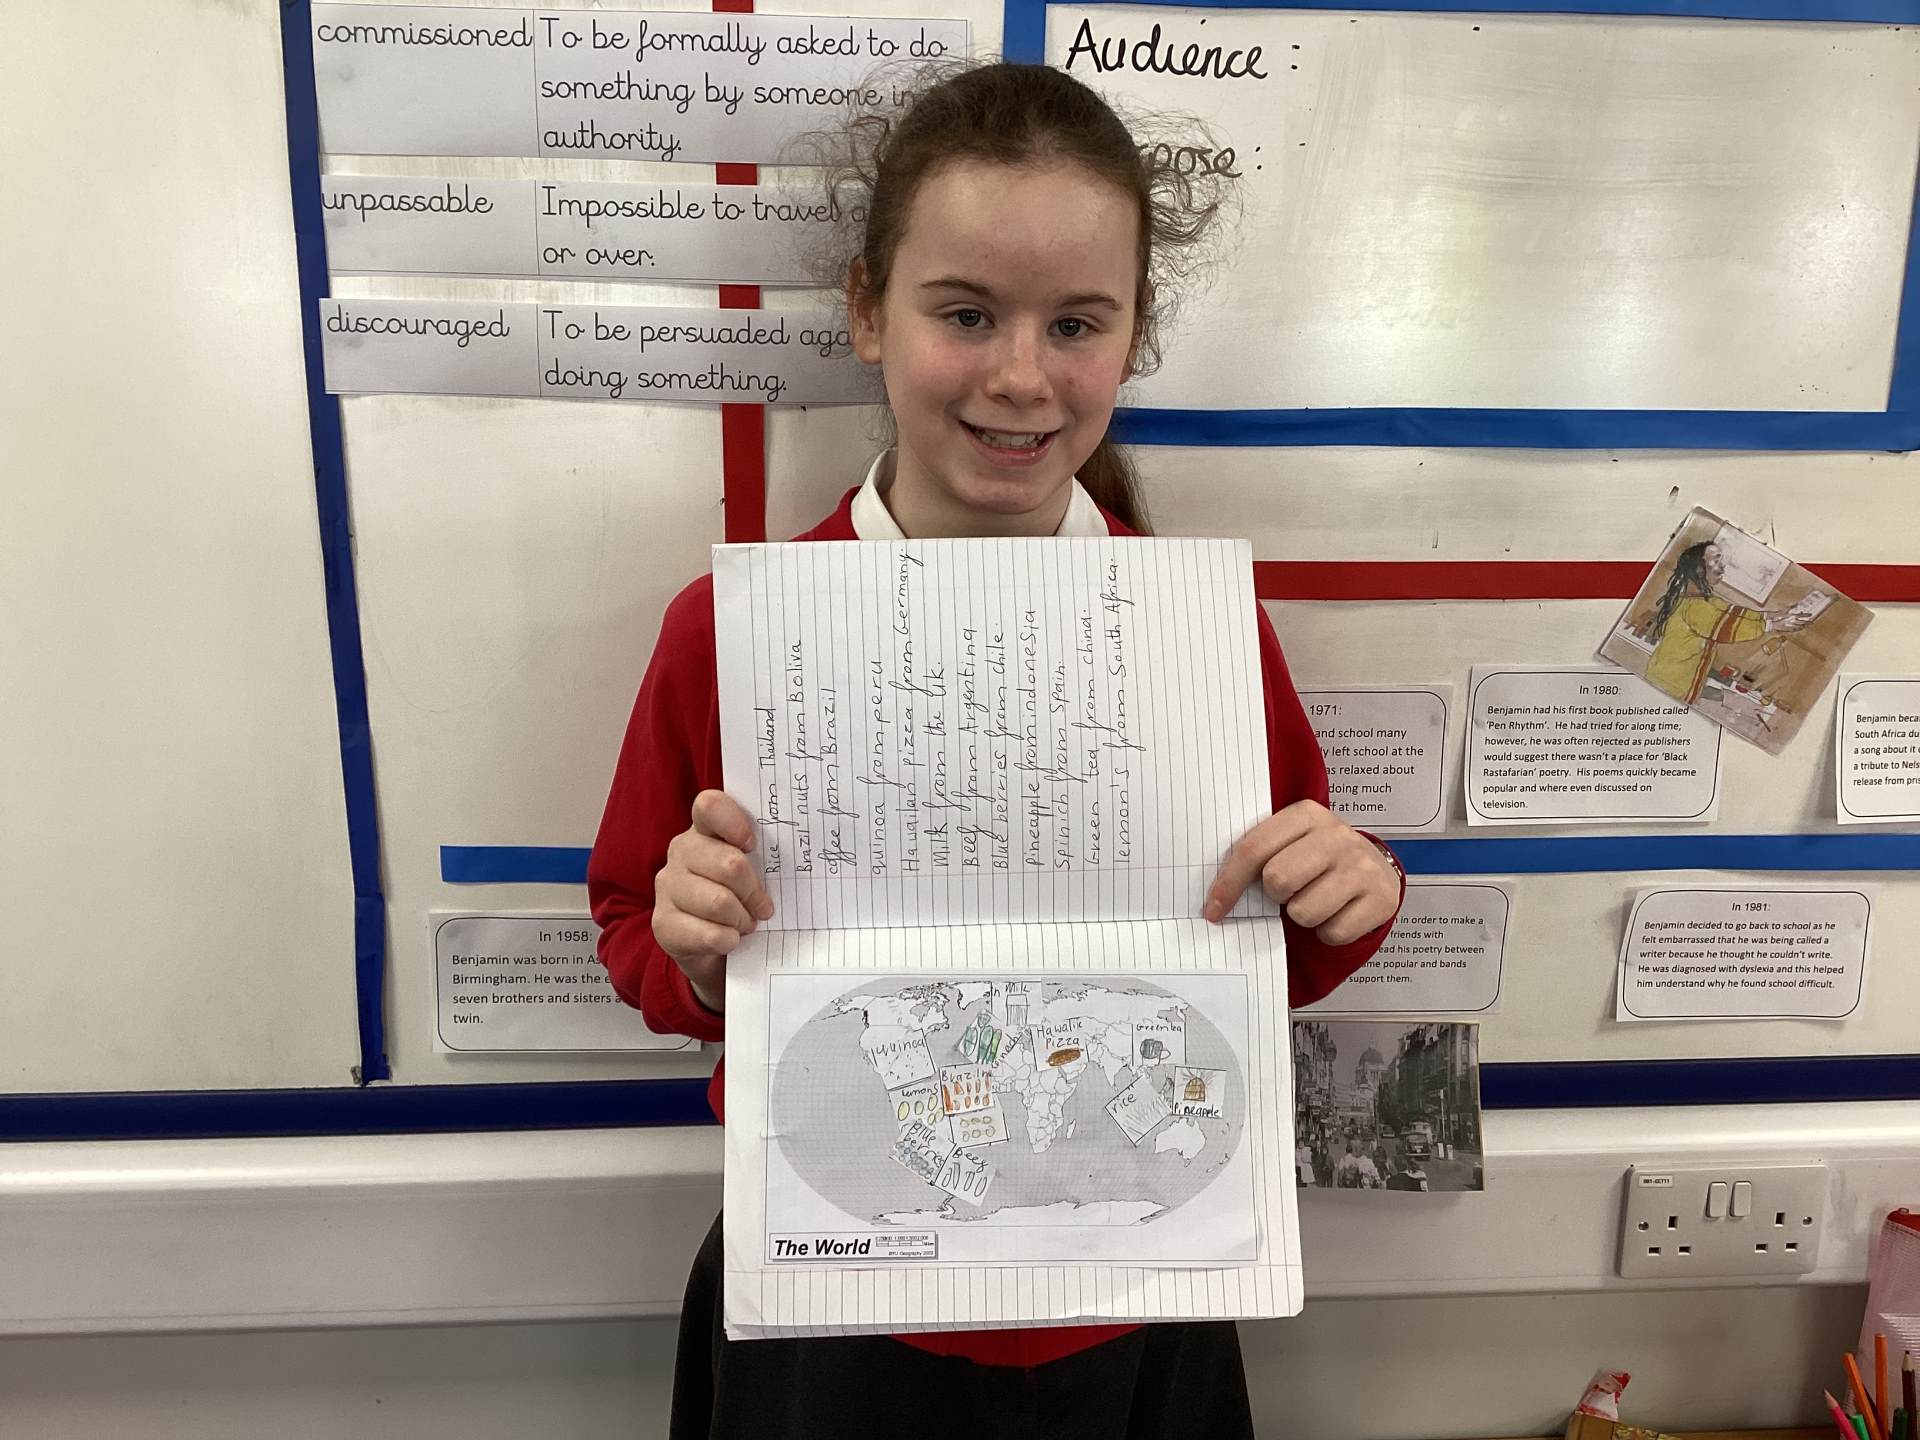 commissioned To be formally asked to do
something by someone in
authority.
unpassable Impossible to travel
or over.
discouraged To be persuaded
doing something.
Audience :
In 1958:
Benjamin was born in
Birmingham. He was the
seven brothers and sisters
twin.
1971:
and school many
left school at the
as relaxed about
doing much
at home.
In 1980:
Benjamin had his first book published called
'Pen Rhythm'. He had tried for along time;
however, he was often rejected as publishers
would suggest there wasn't a place for 'Black
Rastafarian' poetry. His poems quickly became
popular and where even discussed on
television.
Benjamin
South Africa
a song about it
a tribute to
release from
in order to make a
friends with
his poetry between
popular and bands
support them.
In 1981:
Benjamin decided to go back to school as he
felt embarrassed that he was being called a
writer because he thought he couldn't write.
He was diagnosed with dyslexia and this helped
him understand why he found school difficult.
Rice from Thailand
Brazil nuts from Boliva
coffee from Brazil
quinoa from peru
Hawaiian pizza from Germany.
Milk from the Uk.
Beef from Argentina
Blue berries from chile.
Pineapple from indonesia
Spinich from Spain.
Green tea from china.
lemon's from South Africa.
Milk
quinoa
Hawaiin
Pizza
Green tea
lemons
rice
Pineapple
Blue
berries
Beef
The World